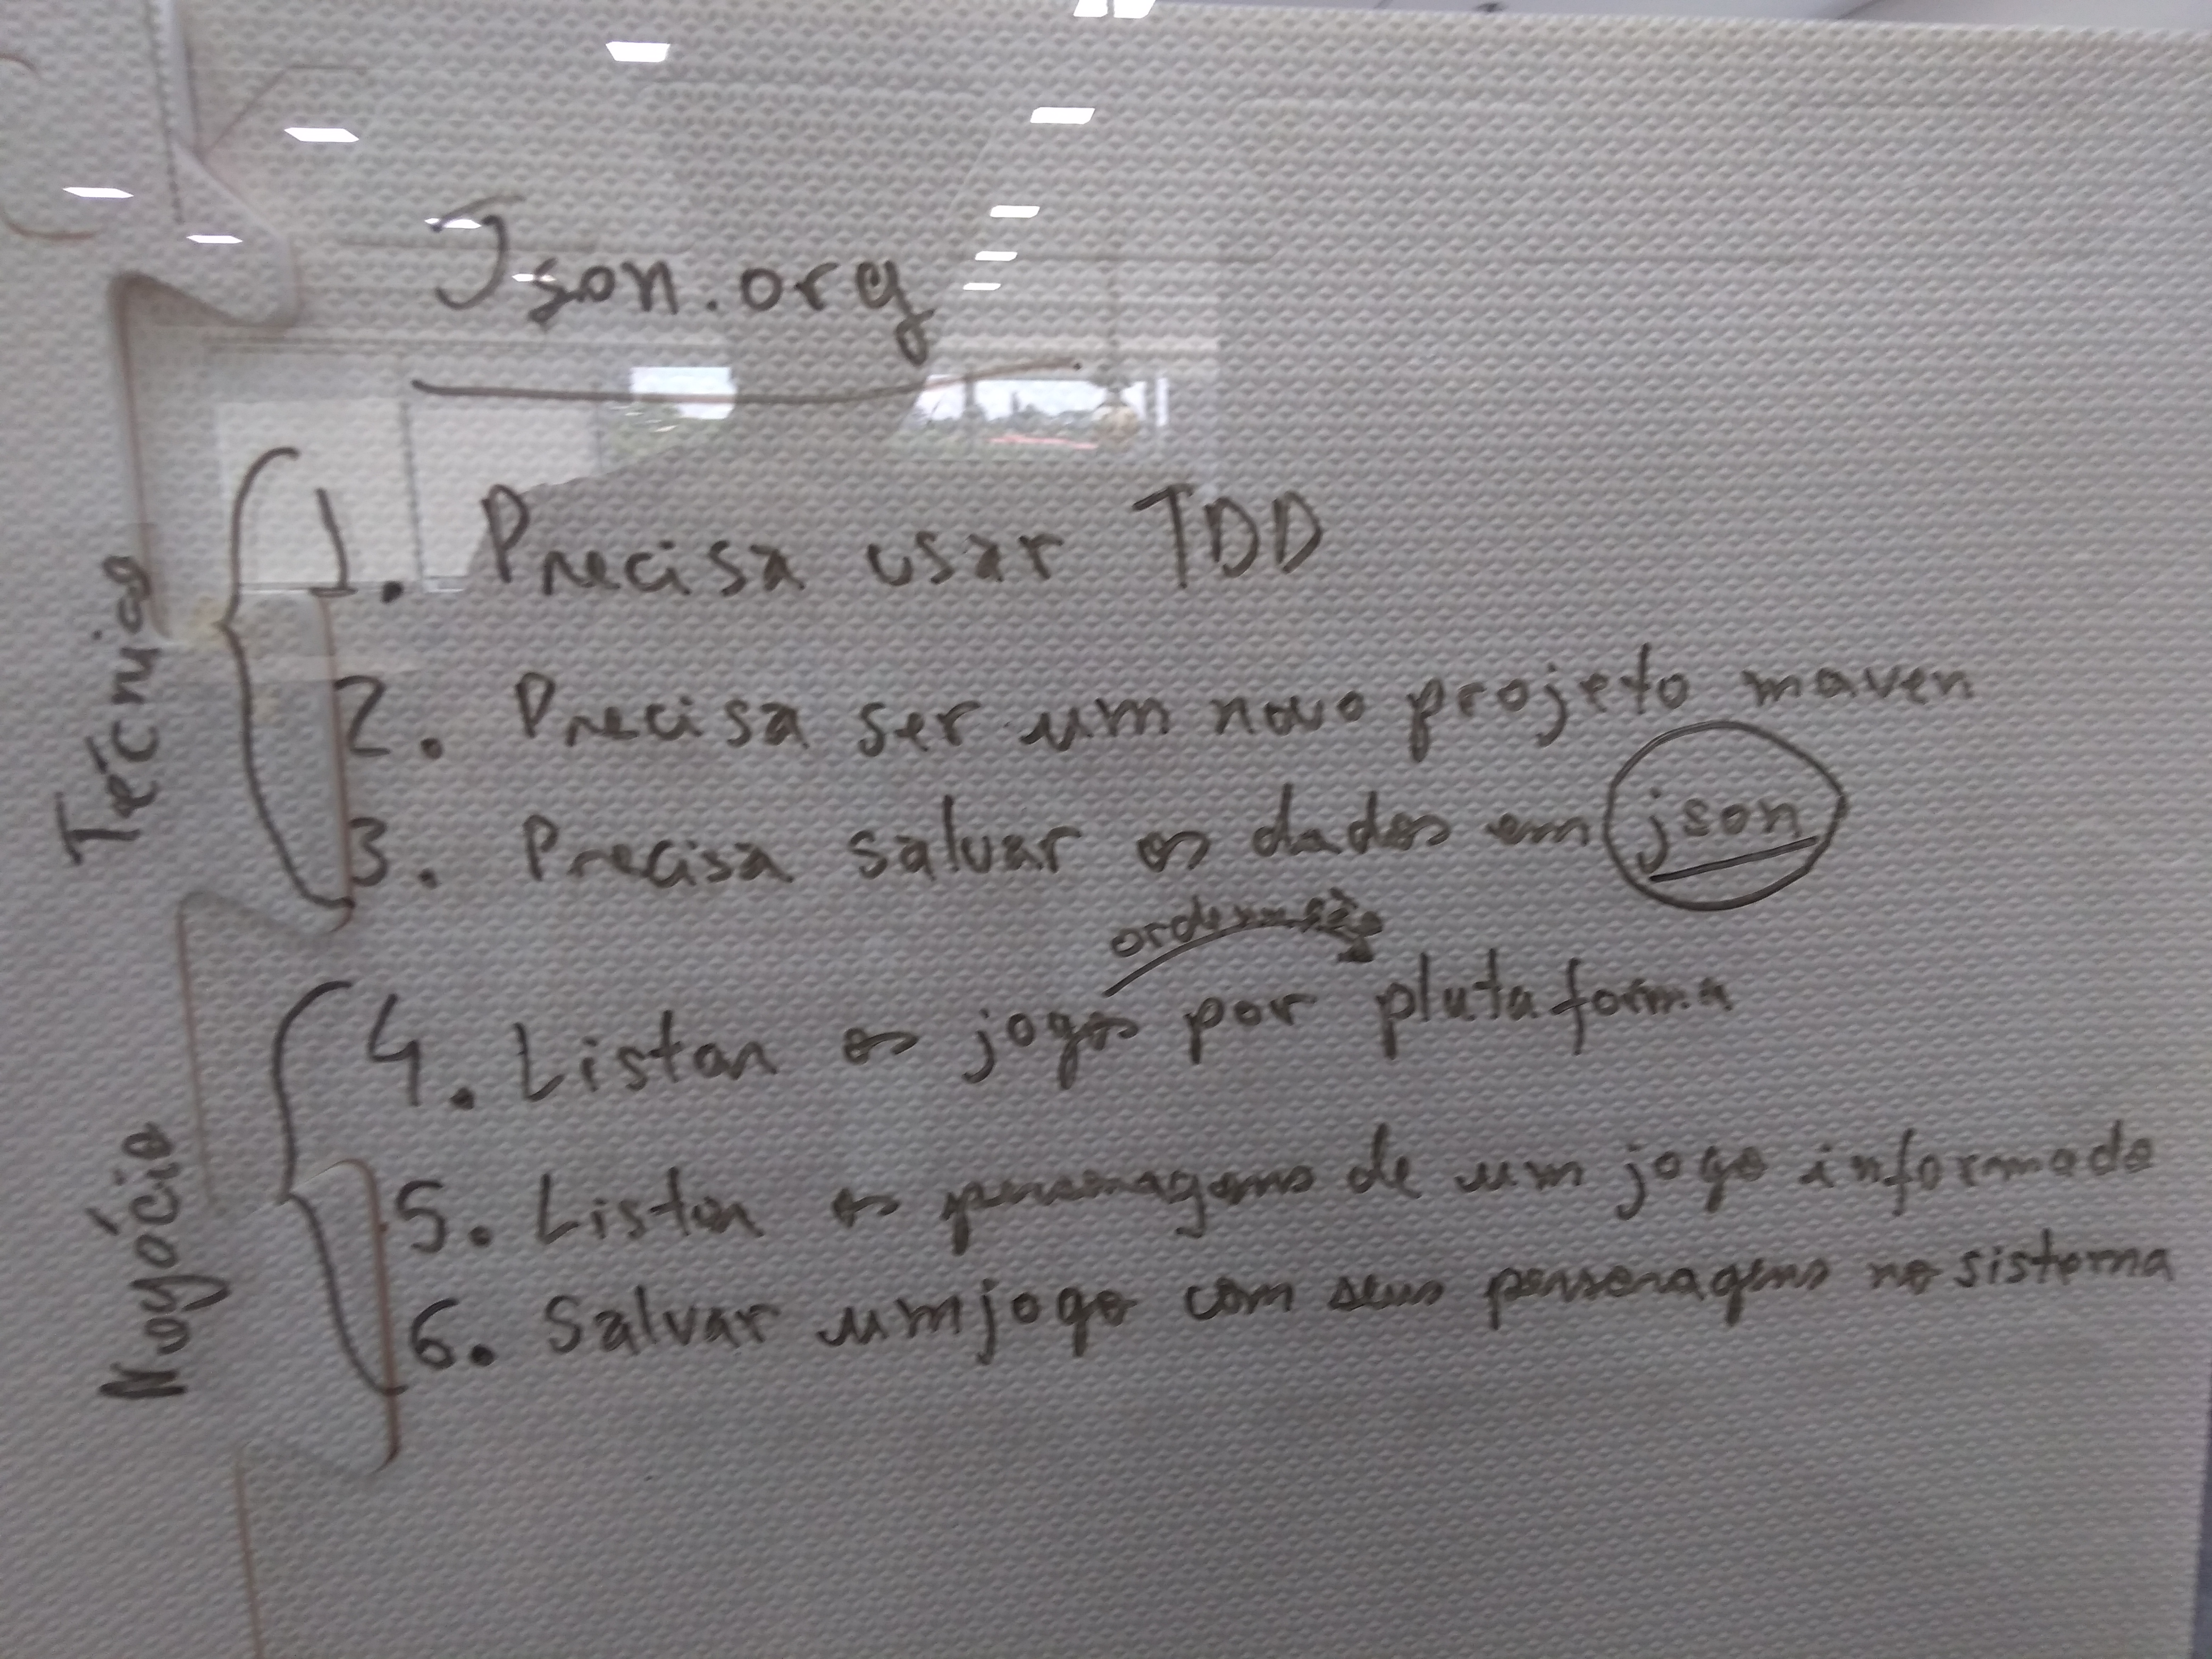 Json.org
Técnico
1. Precisa usar TDD
2. Precisa ser um novo projeto maven
3. Precisa salvar os dados em json
ordenação
Negócio
4. Listar os jogos por plataforma
5. Listar os personagens de um jogo informado
6. Salvar um jogo com seus personagens no sistema